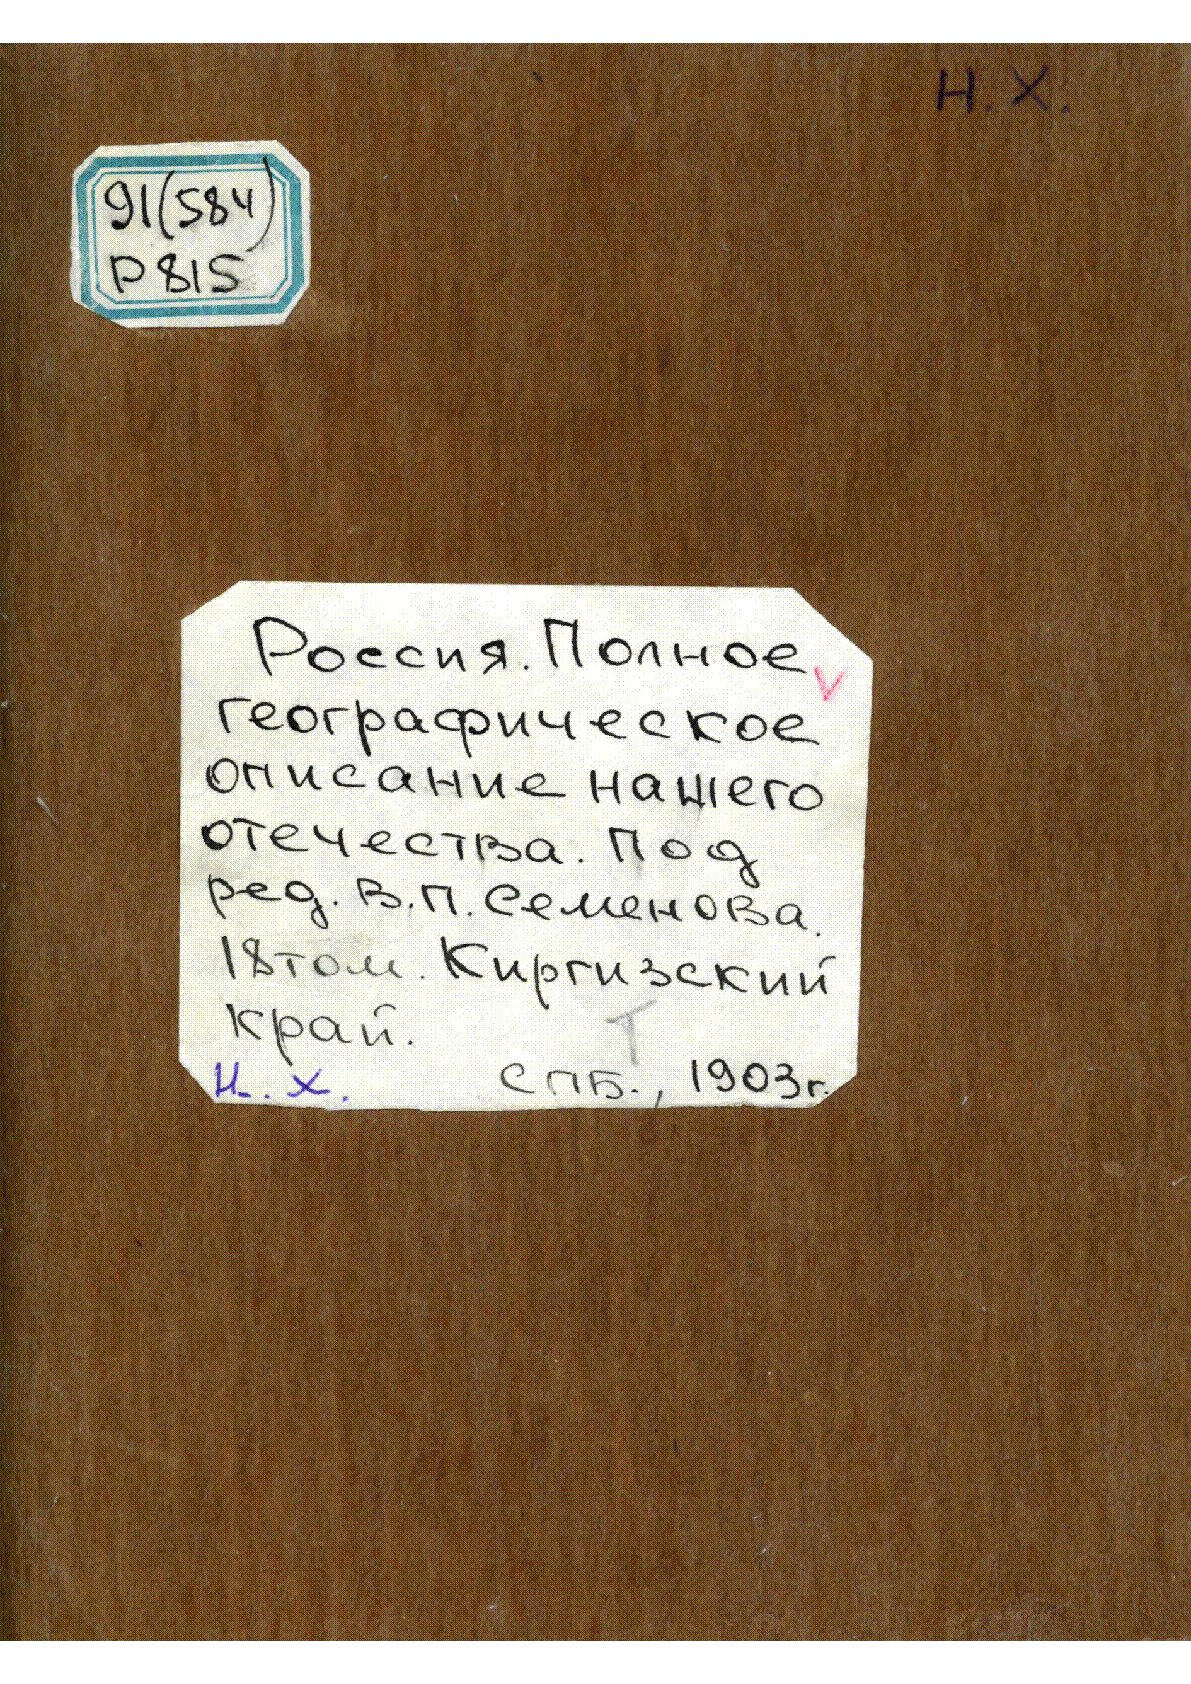 Н. Х.
91(584)
Р 815
Россия. Полное
географическое
описание нашего
отечества. Под
ред. В.П. Семенова.
18том. Киргизский
край.
Т
Н. Х.
СПБ., 1903г.